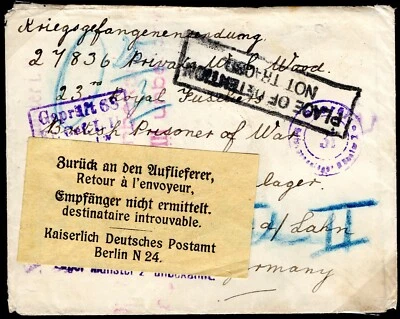 Kriegsgefangenensendung
27836 Private W. Wood
PLACE OF DETENTION
NOT TRACED
23rd Royal Fusiliers
Geprüft
British Prisoner of War
Zurück an den Auflieferer,
Retour à l'envoyeur,
Empfänger nicht ermittelt.
destinataire introuvable.
Kaiserlich Deutsches Postamt
Berlin N 24.
lager
a/Lahn
II
Germany
unbekannt.